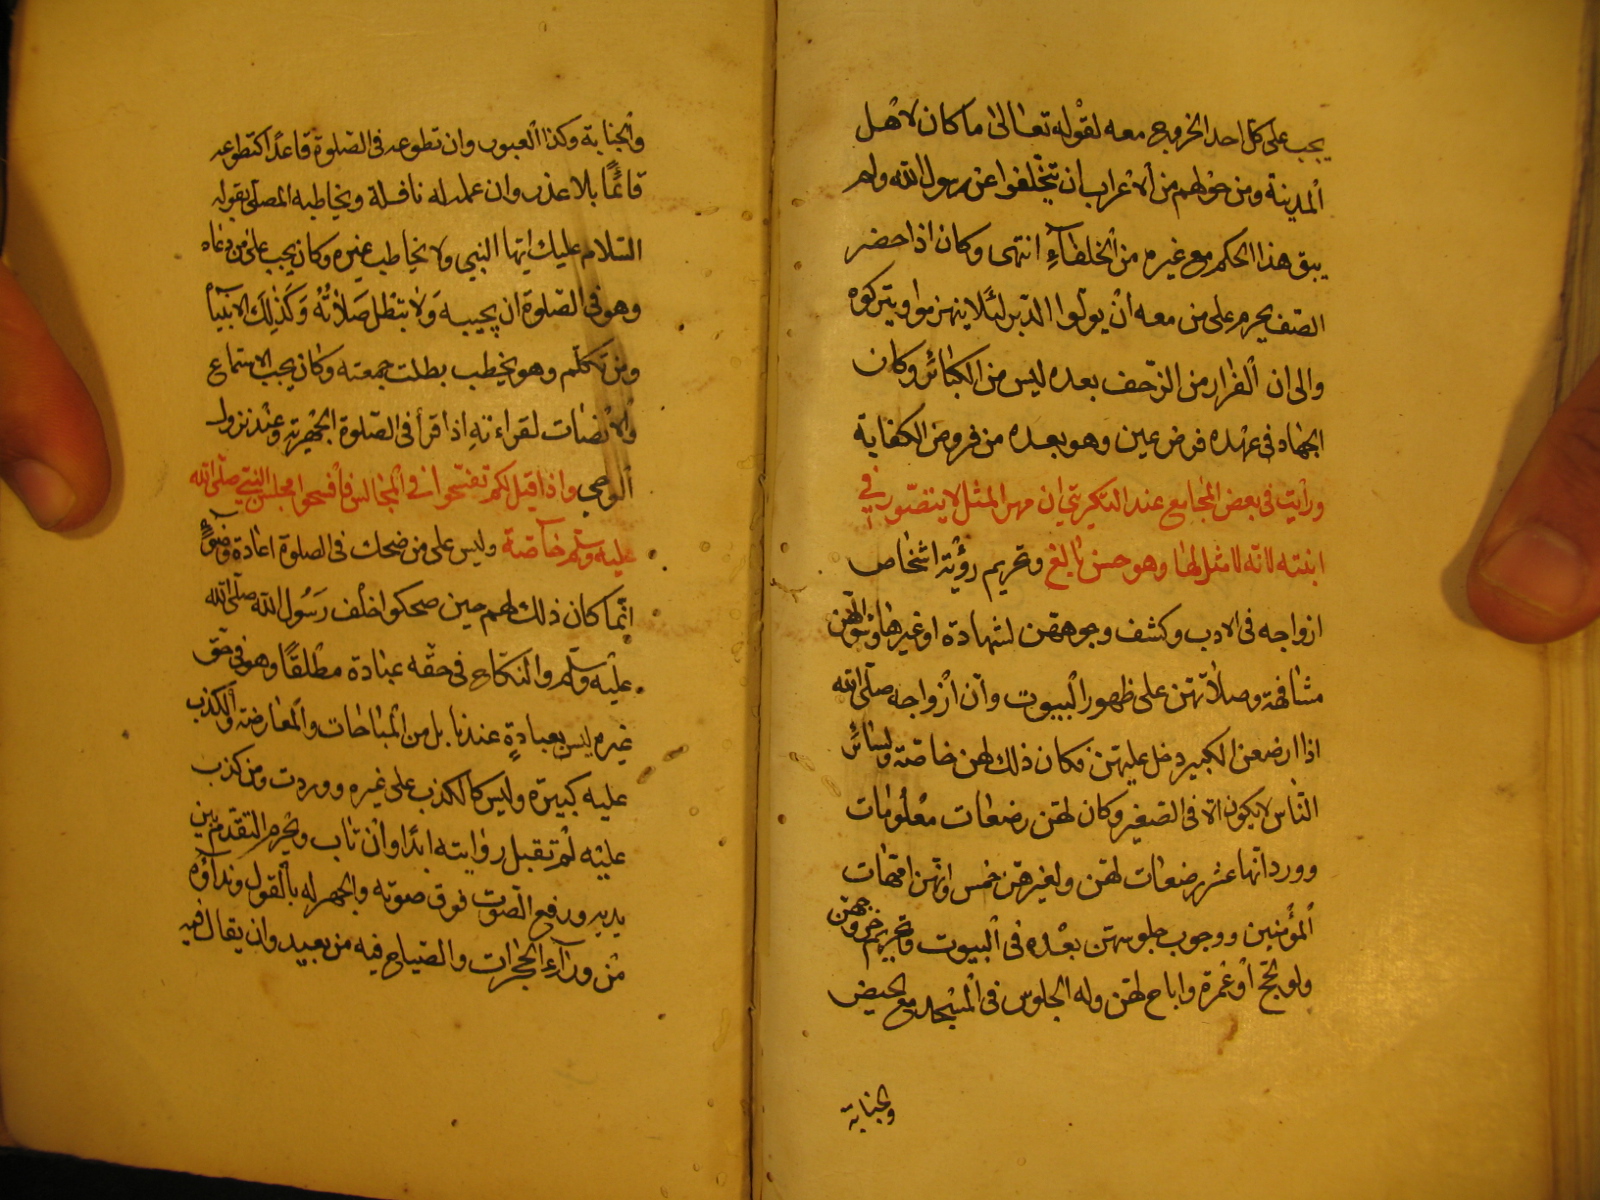 يجب على كل احد الخروج معه لقوله تعالى ما كان لاهل
المدينة ومن حولهم من الاعراب ان يتخلفوا عن رسول الله ولم
يبق هذا الحكم مع غيره من الخلفاء انتهى وكان اذا حضر
الصف يحرم على من معه ان يولوا الدبر لئلا ينهزموا ويتركوه
والى ان الفرار من الزحف بعده ليس من الكبائر وكان
الجهاد فى عهده فرض عين وهو بعده من فروض الكفاية
ورأيت فى بعض المجاميع عند التكريتي ان مهر المثل لا يتصور في
ابنته لانه لا مثل لها وهو حسن بالغ وتحريم رؤية اشخاص
ازواجه فى الادب وكشف وجوههن لشهادة او غيرها وسؤالهن
مشافهة وصلاتهن على ظهور البيوت وان ازواجه صلى الله
اذا ارضعن الكبير دخل عليهن فكان ذلك لهن خاصة ولسائر
الناس لا يكون الا فى الصغير وكان لهن رضعات معلومات
وورد انها عشر رضعات لهن ولغيرهن خمس وانهن امهات
المؤمنين ووجوب جلوسهن بعده فى البيوت وتحريم خروجهن
ولو لحج او عمرة واباح لهن وله الجلوس فى المسجد مع الحيض
والجنابة
والجنابة وكذا العبور وان تطوعه فى الصلوة قاعدا كتطوعه
قائما بلا عذر وان عمله له نافلة ويخاطبه المصلى بقوله
السلام عليك ايها النبي ولا يخاطب غيره وكان يجب على من دعاه
وهو فى الصلوة ان يجيبه ولا تبطل صلاته وكذلك الانبياء
ومن تكلم وهو يخطب بطلت جمعته وكان يجب الاستماع
والانصات لقراءته اذا قرأ فى الصلوة الجهرية وعند نزول
الوحي واذا قيل لكم تفسحوا فى المجالس فافسحوا مجلس النبي صلى الله
عليه وسلم خاصة وليس على من ضحك فى الصلوة اعادة وضوء
انما كان ذلك لهم حين ضحكوا خلف رسول الله صلى الله
عليه وسلم والنكاح فى حقه عبادة مطلقا وهو فى حق
غيره ليس بعبادة عندنا بل من المباحات والمعارضة والكذب
عليه كبيرة وليس كالكذب على غيره ووردت ومن كذب
عليه لم تقبل روايته ابدا وان تاب ويحرم التقدم بين
يديه ورفع الصوت فوق صوته والجهر له بالقول ونداؤه
من وراء الحجرات والصياح فيه من بعيد وان يقال فيه